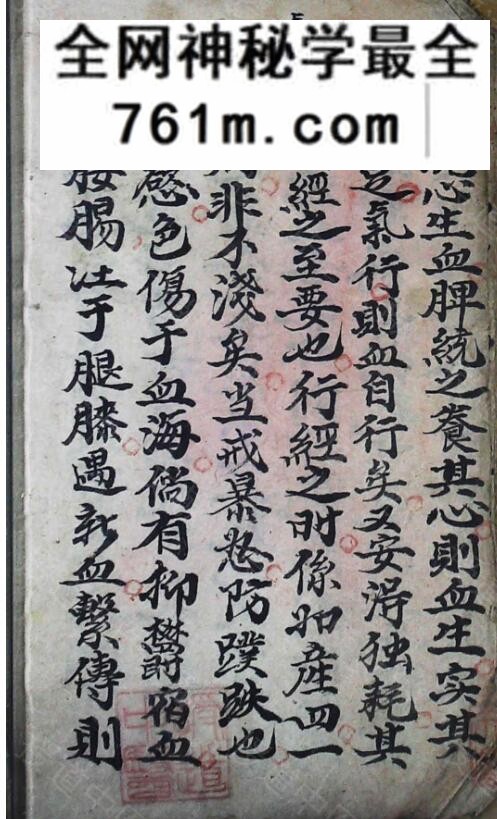 全网神秘学最全
761m.com
心生血脾統之養其心則血生实其
氣行則血自行矣又安得独耗其
經之至要也行經之时係如産四一
非不淺矣当戒暴怒防蹼跌也
感色傷于血海倘有抑欝宿血
腰腸注于腿膝遇新血繫傳則